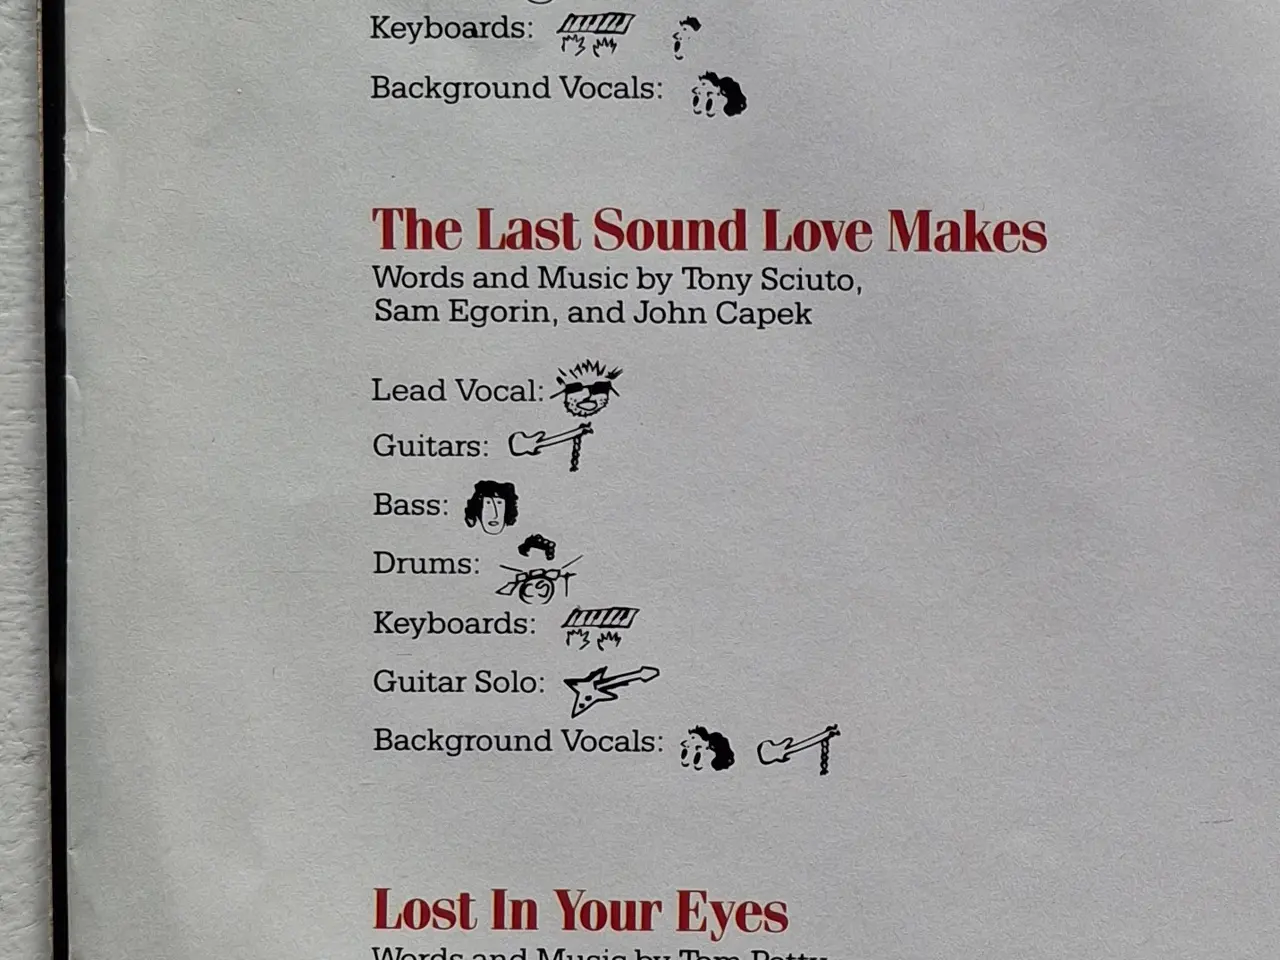 Keyboards:
Background Vocals:
The Last Sound Love Makes
Words and Music by Tony Sciuto,
Sam Egorin, and John Capek
Lead Vocal:
Guitars:
Bass:
Drums:
Keyboards:
Guitar Solo:
Background Vocals:
Lost In Your Eyes
Words and Music by Tom Petty